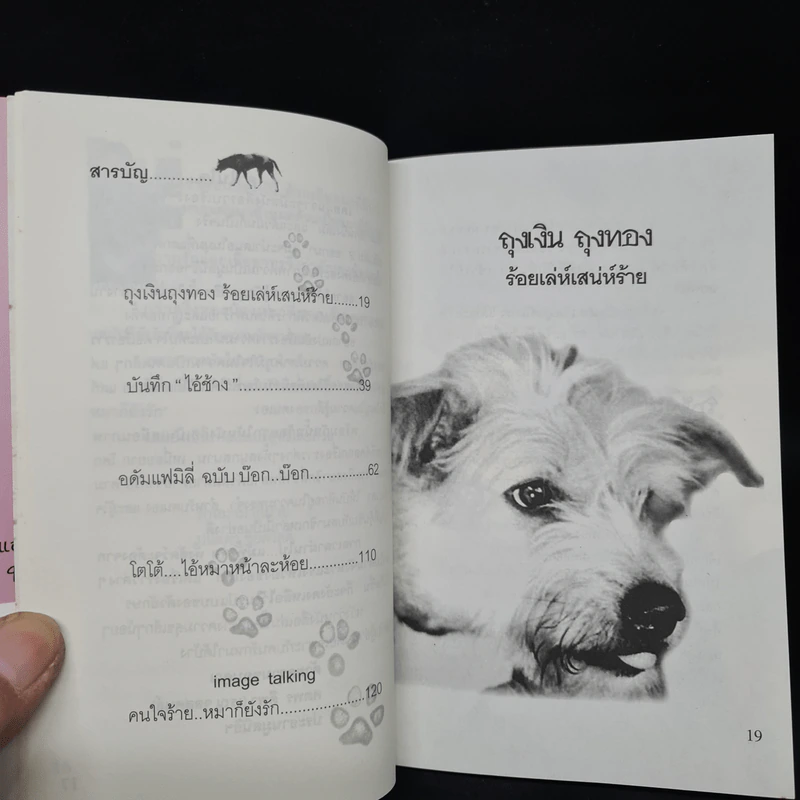 สารบัญ..............
ถุงเงินถุงทอง ร้อยเล่ห์เสน่ห์ร้าย.......19
บันทึก “ ไอ้ช้าง”..............................39
อดัมแฟมิลี่ ฉบับ บ๊อก..บ๊อก...............62
โตโต้....ไอ้หมาหน้าละห้อย.............110
image talking
คนใจร้าย..หมาก็ยังรัก....................120
ถุงเงิน ถุงทอง
ร้อยเล่ห์เสน่ห์ร้าย
19